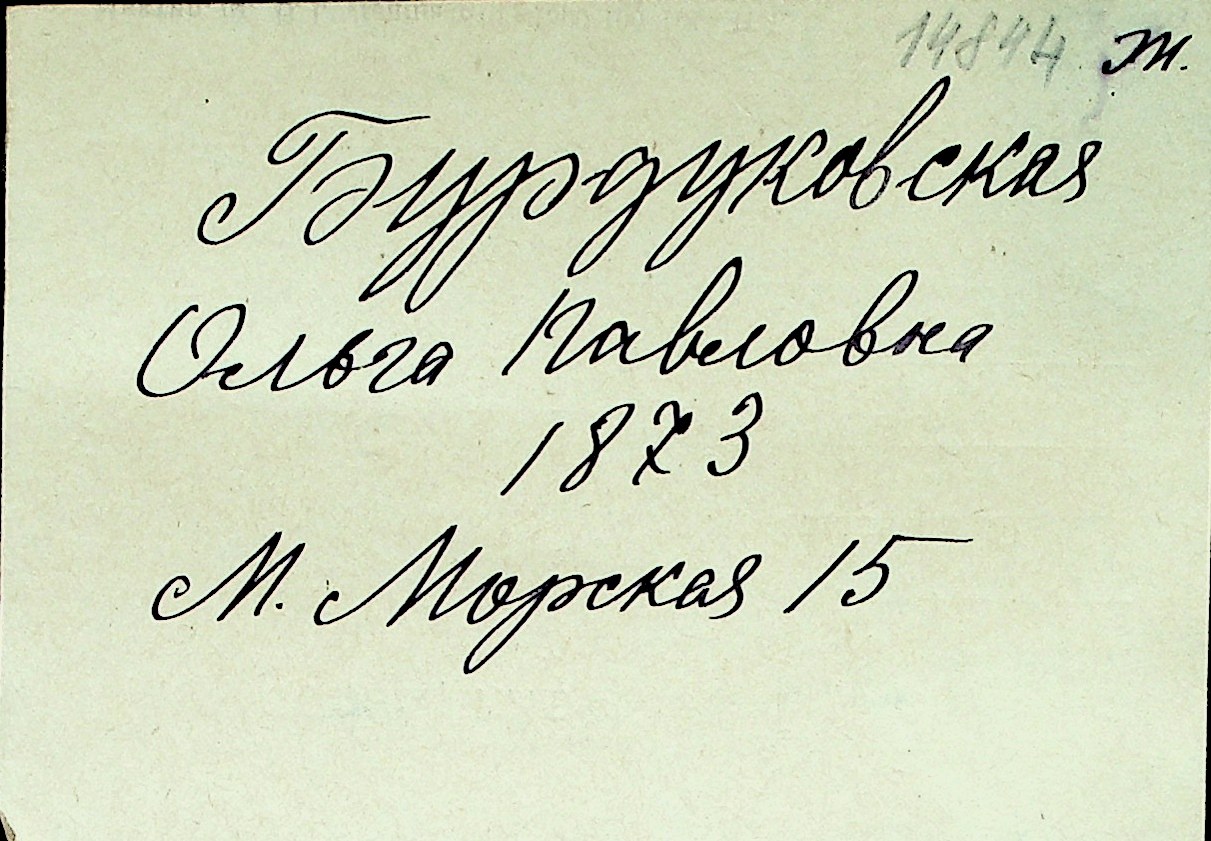 14844 Ж.
Бурдуковская
Ольга Павловна
1873
М. Морская 15